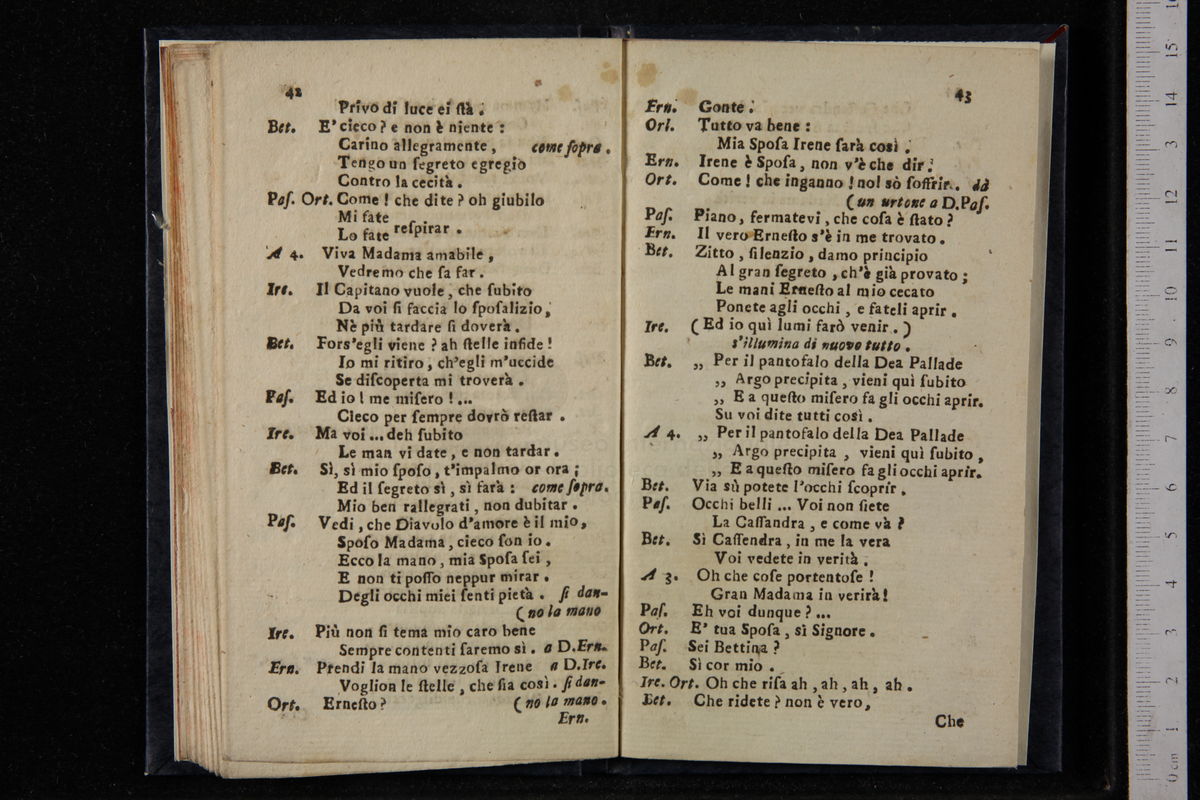 42
Privo di luce ei ſtà.
Bet. E' cieco? e non è niente:
Carino allegramente, come ſopra.
Tengo un ſegreto egregio
Contro la cecità.
Paſ. Ort. Come! che dite? oh giubilo
Mi fate
Lo fate reſpirar.
A 4. Viva Madama amabile,
Vedremo che ſa far.
Ire. Il Capitano vuole, che ſubito
Da voi ſi faccia lo ſpoſalizio,
Nè più tardare ſi doverà.
Bet. Fors'egli viene? ah ſtelle infide!
Io mi ritiro, ch'egli m'uccide
Se diſcoperta mi troverà.
Paſ. Ed io! me miſero!...
Cieco per ſempre dovrò reſtar.
Ire. Ma voi... deh ſubito
Le man vi date, e non tardar.
Bet. Sì, sì mio ſpoſo, t'impalmo or ora;
Ed il ſegreto sì, sì farà: come ſopra.
Mio ben rallegrati, non dubitar.
Paſ. Vedi, che Diavolo d'amore è il mio,
Spoſo Madama, cieco ſon io.
Ecco la mano, mia Spoſa ſei,
E non ti poſſo neppur mirar.
Degli occhi miei ſenti pietà. ſi dan-
(no la mano
Ire. Più non ſi tema mio caro bene
Sempre contenti ſaremo sì. a D.Ern.
Ern. Prendi la mano vezzoſa Irene a D.Ire.
Voglion le ſtelle, che ſia così. ſi dan-
Ort. Erneſto? (no la mano.
Ern.
43
Ern. Gonte.
Orl. Tutto va bene:
Mia Spoſa Irene ſarà così.
Ern. Irene è Spoſa, non v'è che dir.
Ort. Come! che inganno! nol sò ſoffrir. dà
(un urtone a D.Paſ.
Paſ. Piano, fermatevi, che coſa è ſtato?
Ern. Il vero Erneſto s'è in me trovato.
Bet. Zitto, ſilenzio, damo principio
Al gran ſegreto, ch'è già provato;
Le mani Erneſto al mio cecato
Ponete agli occhi, e fateli aprir.
Ire. (Ed io quì lumi farò venir.)
s'illumina di nuovo tutto.
Bet. „ Per il pantofalo della Dea Pallade
„ Argo precipita, vieni quì ſubito
„ E a queſto miſero fa gli occhi aprir.
Su voi dite tutti così.
A 4. „ Per il pantofalo della Dea Pallade
„ Argo precipita, vieni quì ſubito,
„ E a queſto miſero fa gli occhi aprir.
Bet. Via sù potete l'occhi ſcoprir.
Paſ. Occhi belli... Voi non ſiete
La Caſſandra, e come và?
Bet. Sì Caſſendra, in me la vera
Voi vedete in verità.
A 3. Oh che coſe portentoſe!
Gran Madama in verirà!
Paſ. Eh voi dunque?...
Ort. E' tua Spoſa, sì Signore.
Paſ. Sei Bettina?
Bet. Sì cor mio.
Ire. Ort. Oh che riſa ah, ah, ah, ah.
Bet. Che ridete? non è vero,
Che